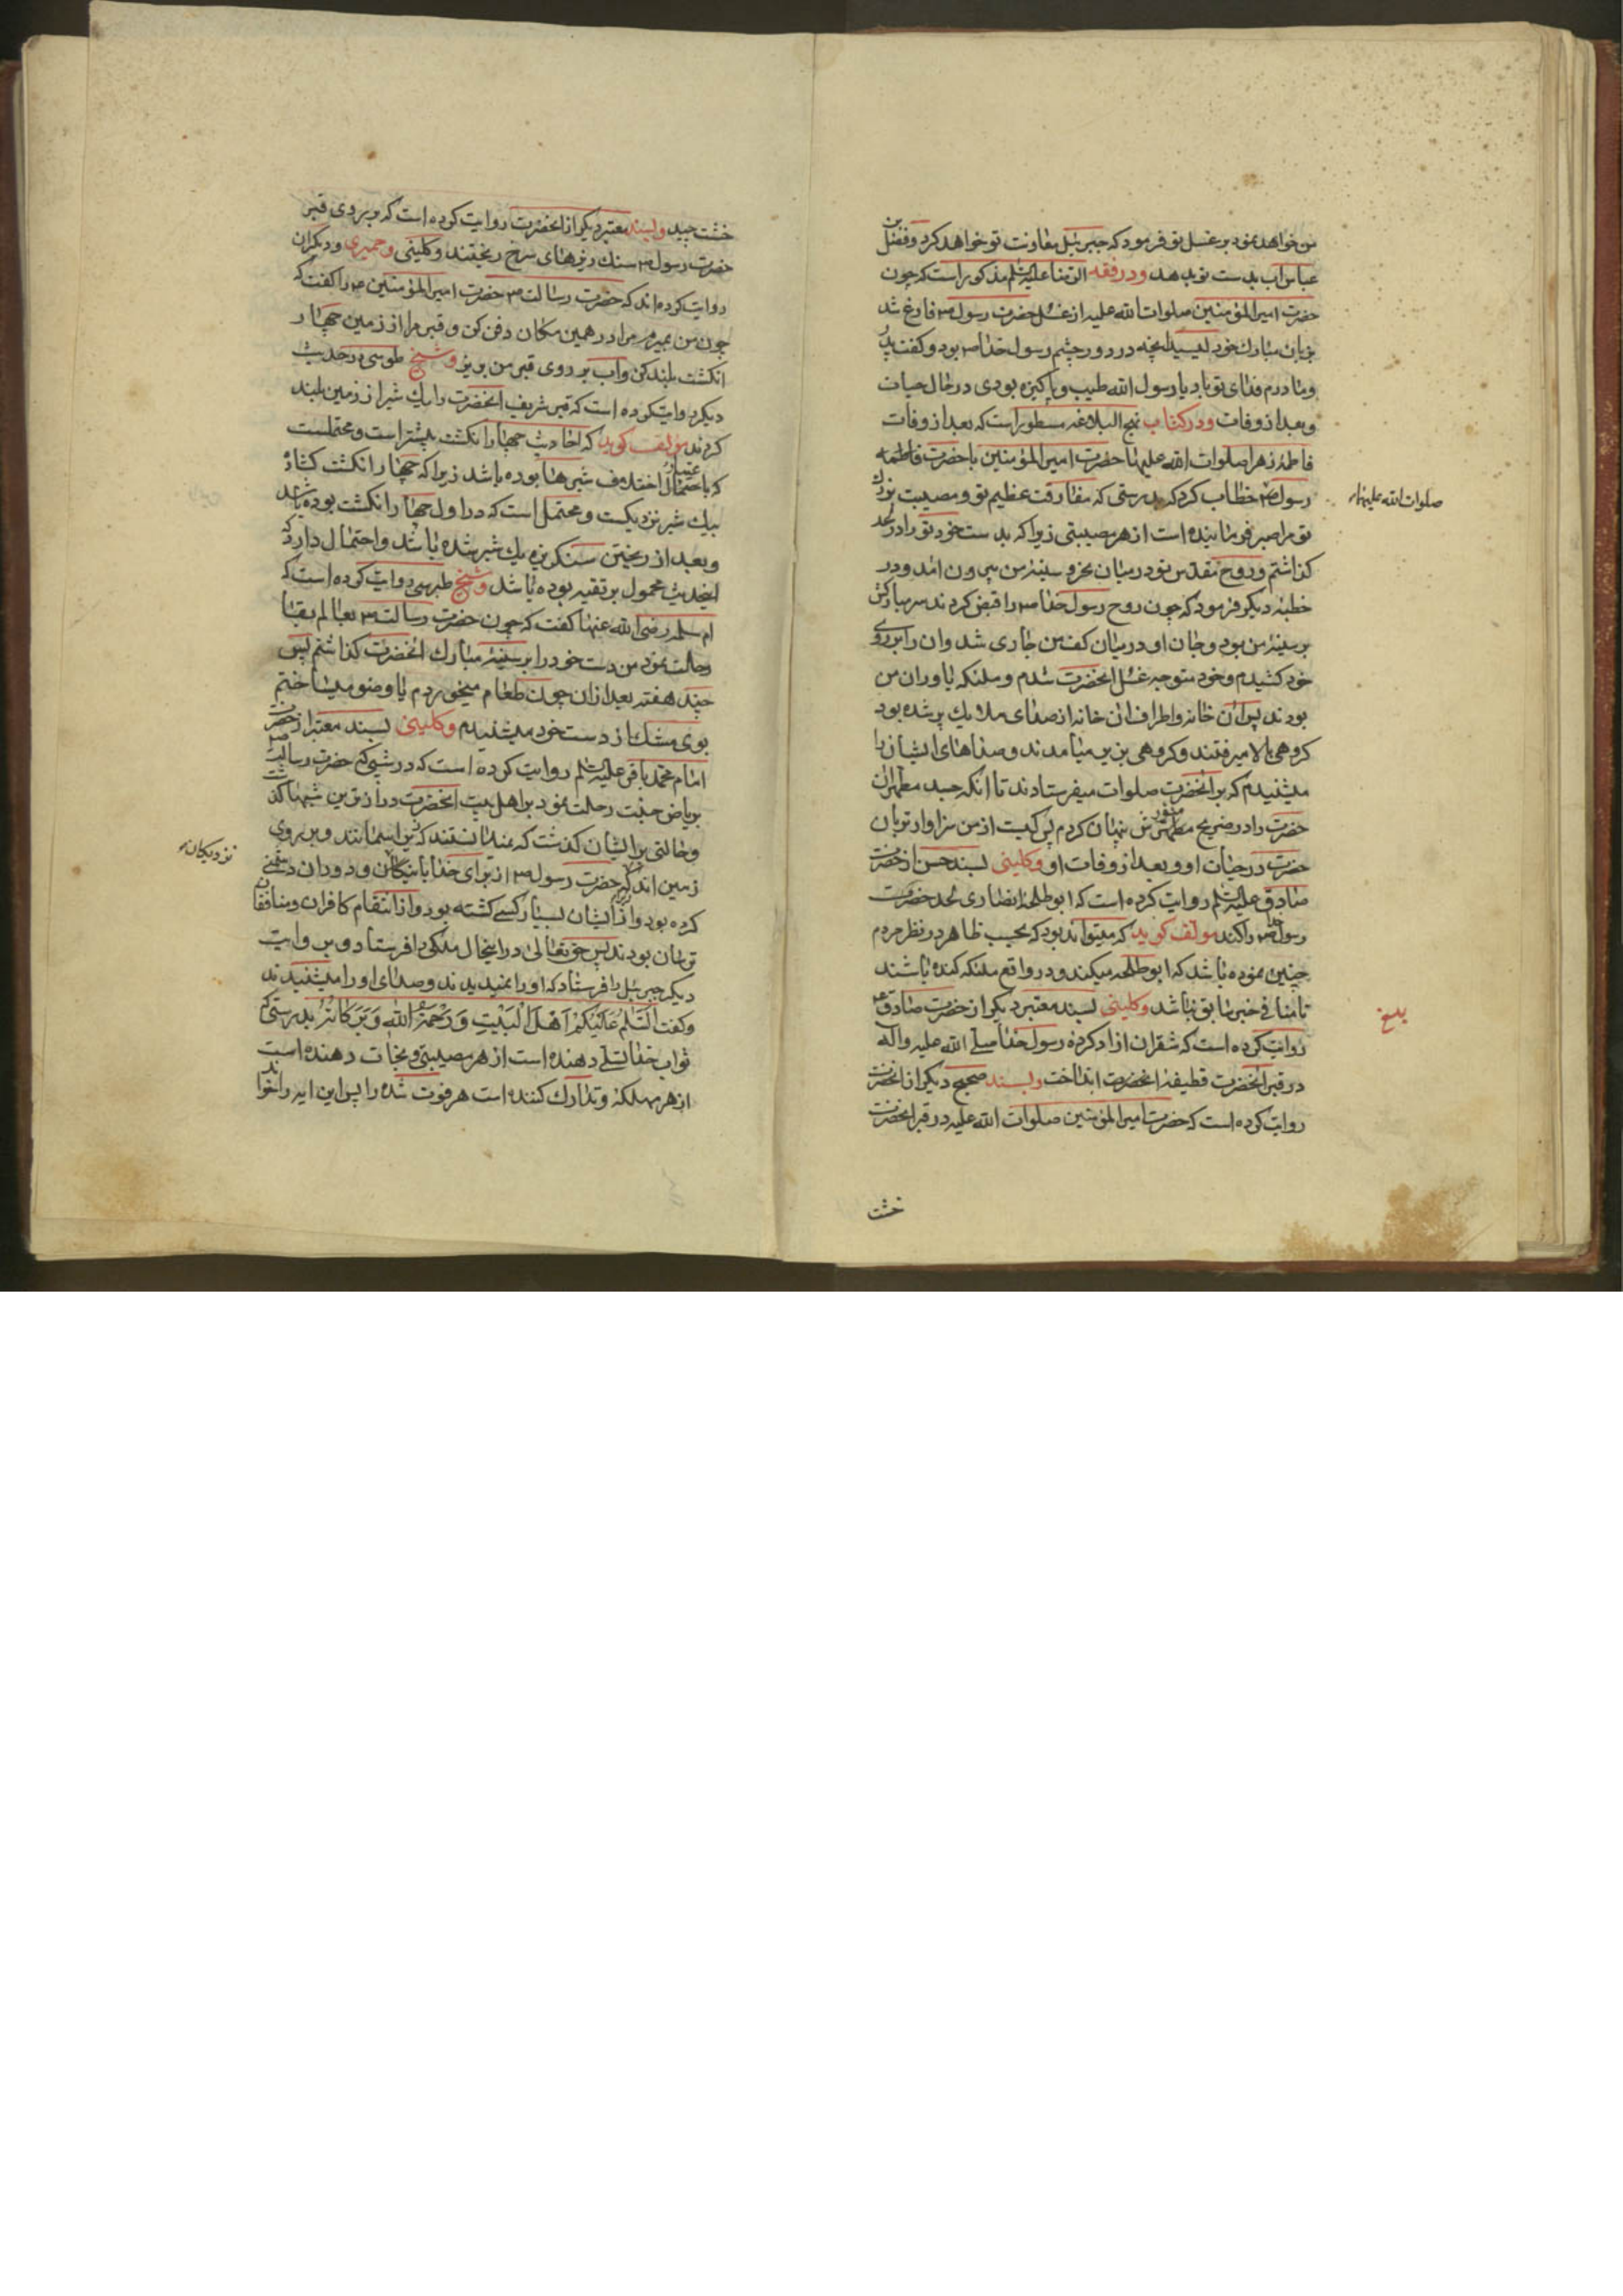 من خواهد نمود بر غسل تو فرمود که جبرئیل معاونت تو خواهد کرد و فضل بن
عباس اب بدست تو بدهد ودر فقه الرضا علیه السلم مذکور است که چون
حضرت امیر المؤمنین صلوات الله علیه از غسل حضرت رسول ص فارغ شد
بزبان مبارک خود لیسید انچه در دور چشم رسول خدا ص بود و کفت پدر
و مادرم فدای تو باد یا رسول الله طیب و پاکیزه بودی در حال حیات
و بعد از وفات ودر کتاب نهج البلاغه مسطور است که بعد از وفات
فاطمهٔ زهرا صلوات الله علیها حضرت امیر المؤمنین با حضرت فاطمه
صلوات الله علیهما
رسول ص خطاب کرد که بدرستی که مفارقت عظیم تو و مصیبت بزرك
تو مرا صبر فرماینده است از هر مصیبتی زیرا که بدست خود تو را در لحد
کذاشتم و روح مقدس تو در میان نحر و سینهٔ من بیرون امد ودر
خطبهٔ دیکر فرمود که چون روح رسول خدا ص را قبض کردند سر مبارکش
بر سینهٔ من بود و جان او در میان کف من جاری شد و ان را بر روی
خود کشیدم و خود متوجه غسل انحضرت شدم و ملئکه یاوران من
بودند پس ان خانه و اطراف ان خانه از صدای ملایك پر شده بود
کروهی بالا میرفتند و کروهی بزیر میامدند و صداهای ایشان را
میشنیدم که بر انحضرت صلوات میفرستادند تا انکه جسد مطهر ان
حضرت را در ضریح منورش پنهان کردم پس کیست از من سزاوارتر بان
حضرت در حیات او و بعد از وفات او وکلینی بسند حسن از حضرت
صادق علیه السلم روایت کرده است که ابو طلحهٔ انصاری لحد حضرت
رسول خدا ص را کند مولف کوید که میتواند بود که بحسب ظاهر در نظر مردم
چنین نموده باشد که ابو طلحه میکند و در واقع ملئکه کنده باشند
تا منافی خبر سابق نباشد وکلینی بسند معتبر دیکر از حضرت صادق ع
بلغ
روایت کرده است که شقران ازاد کردهٔ رسول خدا صلے الله علیه واله
در قبر انحضرت قطیفهٔ انحضرت انداخت وبسند صحیح دیکر از انحضرت
روایت کرده است که حضرت امیر المؤمنین صلوات الله علیه در قبر انحضرت
خشت
خشت چید وبسند معتبر دیکر از انحضرت روایت کرده است که بر روی قبر
حضرت رسول ص سنك ریزهای سرخ ریختند وکلینی وحمیری و دیکران
روایت کرده اند که حضرت رسالت ص حضرت امیر المؤمنین ع را کفت که
چون من بمیرم مرا در همین مکان دفن کن و قبر مرا از زمین چهار
انکشت بلند کن و اب بر روی قبر من بریز وشیخ طوسی در حدیث
دیکر روایت کرده است که قبر شریف انحضرت را یك شبر از زمین بلند
کردند مولف کوید که احادیث چهار انکشت بیشتر است و محتملست
که باعتبار اختلاف شبرها بوده باشد زیرا که چهار انکشت کشاده
بیك شبر نزدیکست و محتمل است که در اول چهار انکشت بوده باشد
و بعد از ریختن سنکریزه یك شبر شده باشد و احتمال دارد که
اینحدیث محمول بر تقیه بوده باشد وشیخ طبرسی روایت کرده است که
ام سلمه رضی الله عنها کفت که چون حضرت رسالت ص بعالم بقا
رحلت نمود من دست خود را بر سینهٔ مبارك انحضرت کذاشتم پس
چند هفته بعد از ان چون طعام میخوردم یا وضو میساختم
بوی مشك از دست خود میشنیدم وکلینی بسند معتبر از حضرت
امام محمد باقر علیه السلم روایت کرده است که در شبی که حضرت رسالت ص
بریاض جنت رحلت نمود بر اهل بیت انحضرت درازترین شبها کذشت
و حالتی بر ایشان کذشت که نمیدانستند که زیر اسمانند و بر روی
زمین اند زیرا که حضرت رسول ص از برای خدا با نزدیکان و دوران دشمنی
نزدیکان
کرده بود و از ایشان بسیار کسے کشته بود و از انتقام کافران و منافقان
ترسان بودند پس حق تعالی در اینحال ملکی را فرستاد و بروایت
دیکر جبرئیل را فرستاد که او را نمیدیدند و صدای او را میشنیدند
و کفت اَلسَّلٰمُ عَلَیْکُمْ اَهْلَ الْبَیْتِ وَرَحْمَةُ اللهِ وَبَرَکَاتُهُ بدرستی که
ثواب خدا تسلے دهنده است از هر مصیبتی و نجات دهنده است
از هر مهلکه و تدارك کننده است هر فوت شده را پس این ایه را خواند